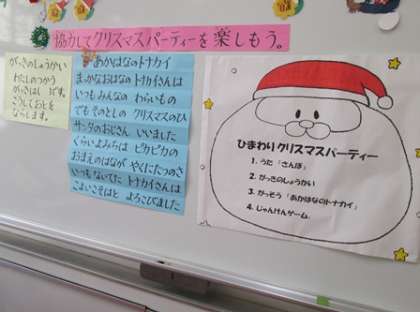 協力してクリスマスパーティーを楽しもう。
がっきのしょうかい
わたしのつかう
がっきは です。
こうしておとを
ならします。
あかはなのトナカイ
まっかなおはなのトナカイさんは
いつもみんなの わらいもの
でも そのとしの クリスマスのひ
サンタのおじさん いいました
くらいよみちは ピカピカの
おまえのはなが やくにたつのさ
いつもないてた トナカイさんは
こよいこそはと よろこびました
ひまわりクリスマスパーティー
1. うた「さんぽ」
2. がっきのしょうかい
3. がっそう「あかはなのトナカイ」
4. じゃんけんゲーム